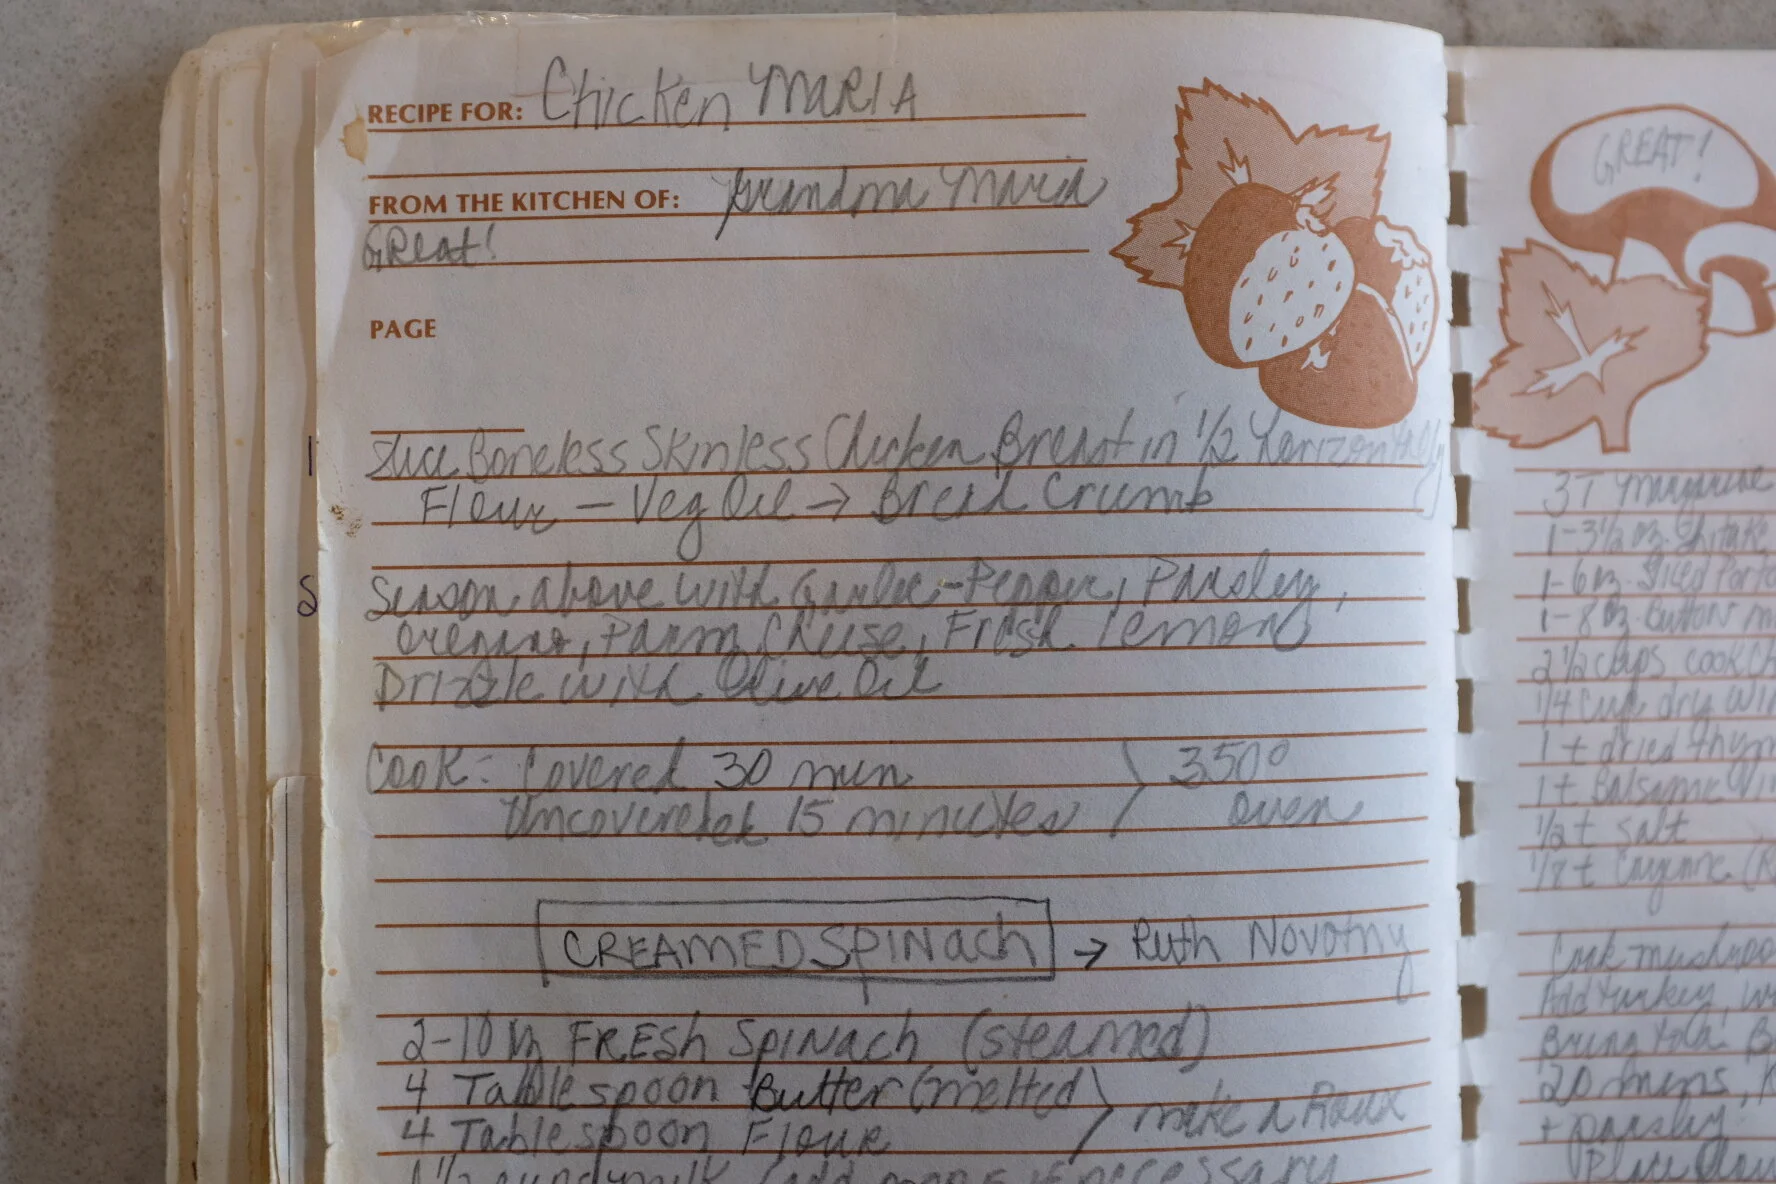 RECIPE FOR: Chicken MARIA
FROM THE KITCHEN OF: Grandma Maria
GReat!
PAGE
Slice Boneless Skinless Chicken Breast in 1/2 horizontally
Flour — Veg Oil → Bread Crumb
Season above with Garlic-Pepper, Parsley,
oregano, Parm Cheese, Fresh Lemon
Drizzle with Olive Oil
Cook: Covered 30 min
Uncovered 15 minutes
350° oven
CREAMED SPINach → Ruth Novotny
2-10 oz FRESh SpiNach (steamed)
4 Tablespoon Butter (melted)
4 Tablespoon Flour
make a Roux
1 1/2 milk (add more if necessary
GREAT!
3T Margarine
1-3 1/2 oz. Shitake
1-6 oz. Sliced Porto
1-8 oz. Button m
2 1/2 cups cook Ch
1/4 Cup dry Wi
1 t dried thym
1 t Balsamic Vin
1/2 t salt
1/8 t Cayenne (R
Cook mushroo
Add turkey, w
Bring to a B
20 mins,
+ parsley
Place